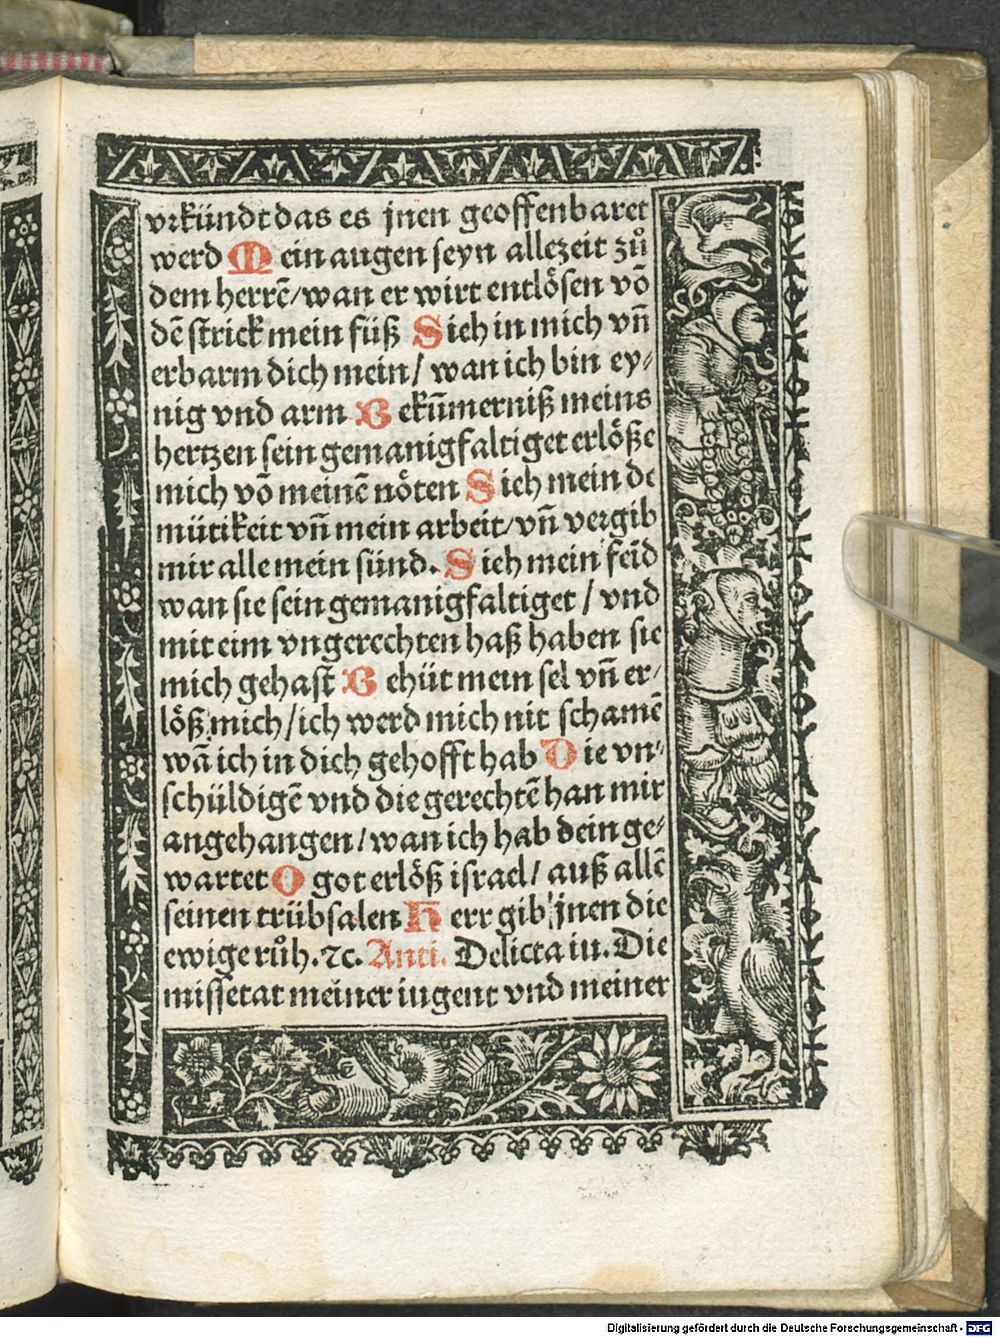 vrkündt das es jnen geoffenbaret
werd Mein augen seyn allezeit zuͦ
dem herrē/wan er wirt entlösen vō
dē strick mein füß Sieh in mich vn̄
erbarm dich mein/ wan ich bin ey⸗
nig vnd arm Bekūmerniß meins
hertzen sein gemanigfaltiget erlöße
mich vō meinē nöten Sieh mein de
mütikeit vn̄ mein arbeit/vn̄ vergib
mir alle mein sünd. Sieh mein feīd
wan sie sein gemanigfaltiget / vnd
mit eim vngerechten haß haben sie
mich gehast Behüt mein sel vn̄ er⸗
löß mich/ich werd mich nit schamē
wā ich in dich gehofft hab Die vn⸗
schüldigē vnd die gerechtē han mir
angehangen/wan ich hab dein ge⸗
wartet O got erlöß israel/ auß allē
seinen trübsalen Herr gib jnen die
ewige ruͦh. ⁊c. Anti. Delicta iu. Die
missetat meiner iugent vnd meiner
Digitalisierung gefördert durch die Deutsche Forschungsgemeinschaft - DFG